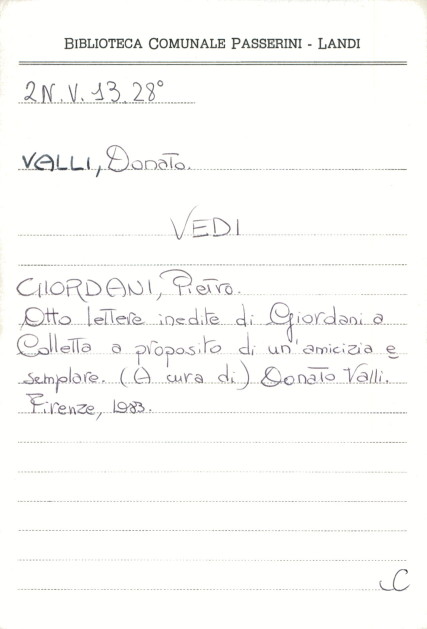 BIBLIOTECA COMUNALE PASSERINI - LANDI
2N.V.13.28°
VALLI, Donato.
VEDI
GIORDANI, Pietro.
Otto lettere inedite di Giordani a
Colletta a proposito di un'amicizia e
semplare. (A cura di) Donato Valli.
Firenze, 1983.
C